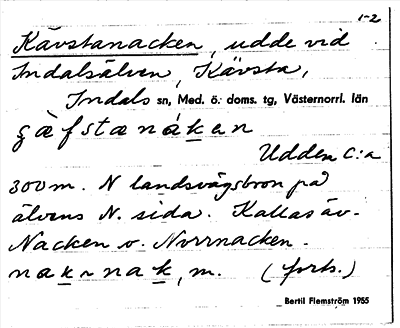 1-2
Kävstanacken, udde vid
Indalsälven, Kävsta,
Indals sn, Med. ö. doms. tg, Västernorrl. län
Udden c:a
300 m. N landsvägsbron på
älvens N. sida. Kallas äv.
Nacken o. Norrnacken.
m. (forts.)
Bertil Flemström 1955